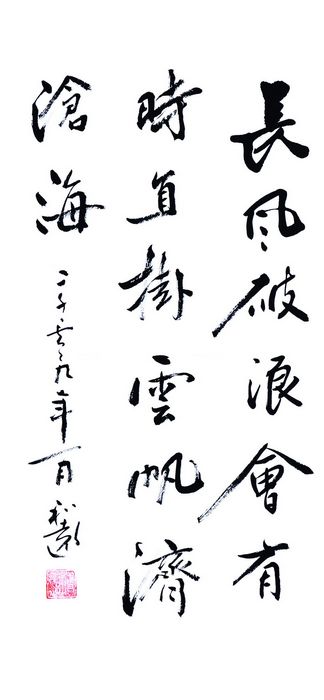 長風破浪會有
時直掛雲帆濟
滄海
二千零九年一月